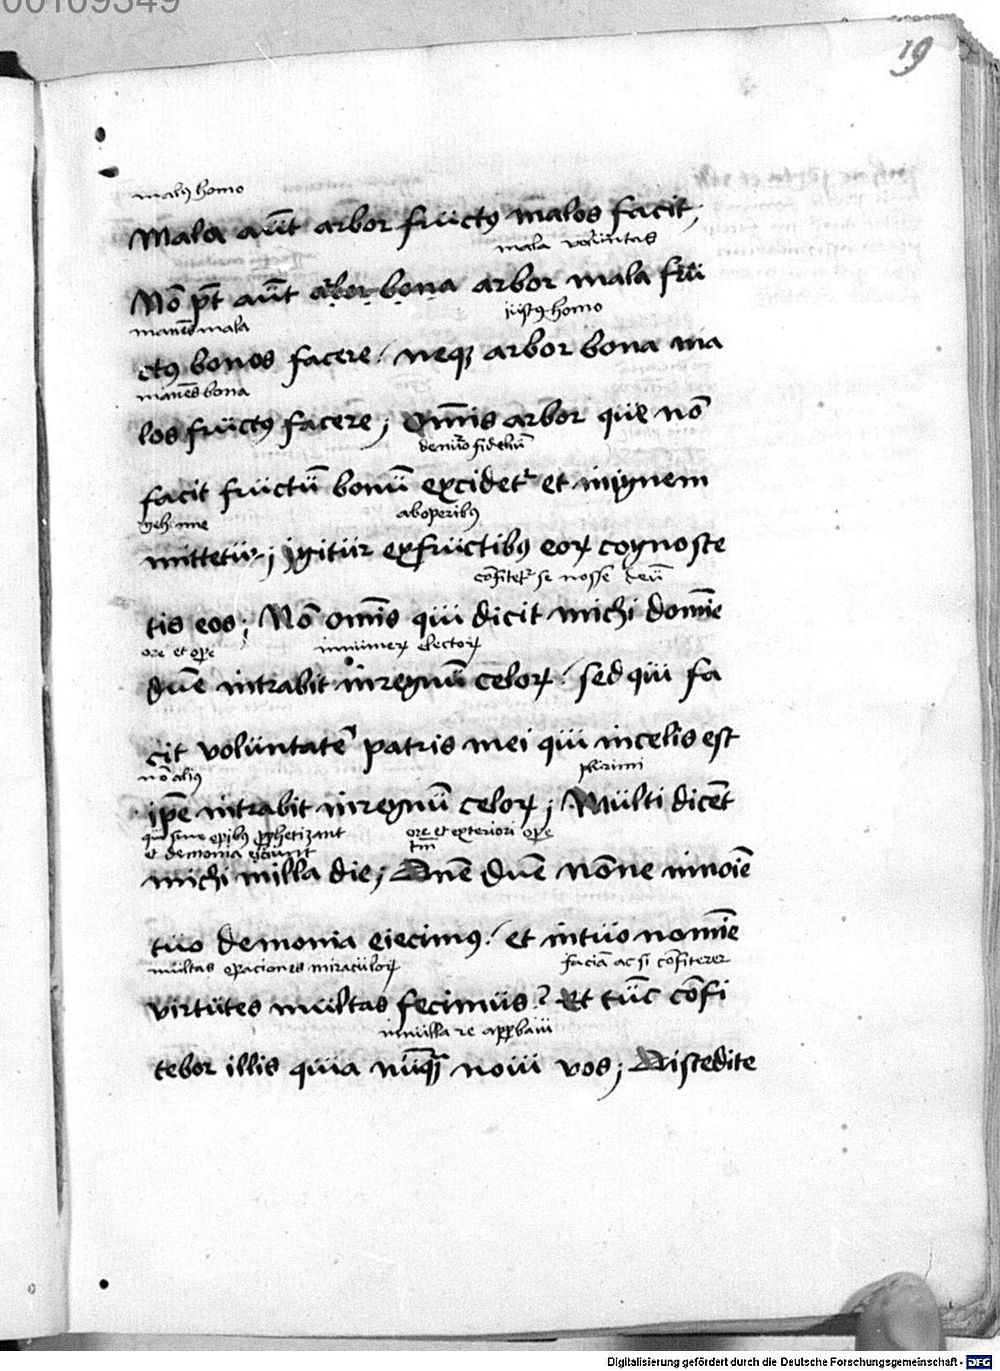 00109349
19
malꝰ homo
Mala aūt arbor fructꝰ malos facit,
mala voluntas
Nō pt̄ aūt arbor bona arbor mala fru
manēs mala justꝰ homo
ctꝰ bonos facere / neqꝫ arbor bona ma
manēs bona
los fructꝰ facere ; Om̄is arbor que nō
fidelium
facit fructū bonū excidet᷑ et in ignem
gehenne ab operibꝰ
mittetur ; Igitur ex fructibꝰ eoꝝ cognosce
cōfitet᷑ se nosse deū
tis eos ; Nō om̄is qui dicit michi domīe
ore et oꝑe innumeꝝ electoꝝ
dn̄e intrabit in regnū celoꝝ / sed qui fa
cit voluntatē patris mei qui in celis est
nō aliꝰ plurimi
ip̄e intrabit in regnū celoꝝ ; Multi dicēt
qui sine oꝑibꝰ ꝓphetizant ore et exteriori oꝑe
et demonia tm̄
michi in illa die ; Dn̄e dn̄e nōne in noīe
tuo demonia eiecimꝰ / et in tuo nomīe
multas oꝑaciones miraculoꝝ faciā ac si cōfiterer
virtutes multas fecimus ? Et tūc cōfi
in nulla re approbaui
tebor illis quia nūqꝫ noui vos ; Discedite
Digitalisierung gefördert durch die Deutsche Forschungsgemeinschaft - DFG